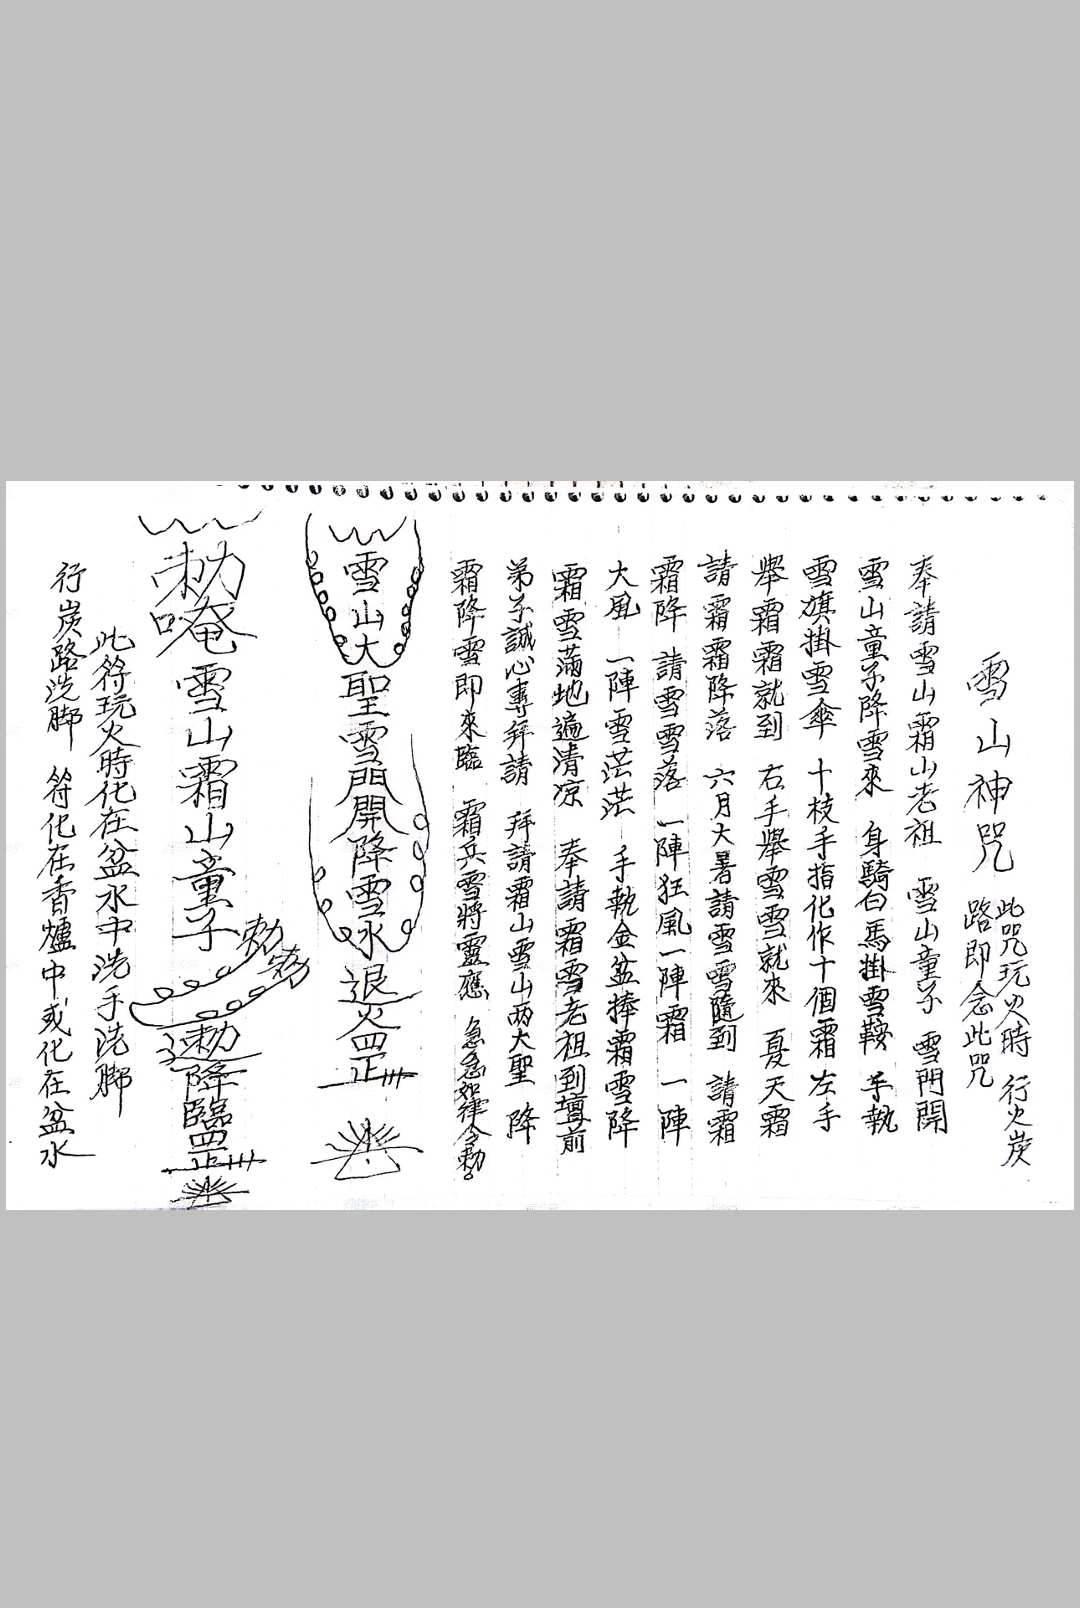 雪山神咒
此咒玩火時 行火炭
路即念此咒
奉請雪山霜山老祖 雪山童子 雪門開
雪山童子降雪來 身騎白馬掛雪鞍 手執
雪旗掛雪傘 十枝手指化作十個霜 左手
舉霜霜就到 右手舉雪雪就來 夏天霜
請霜霜降落 六月大暑請雪雪隨到 請霜
霜降 請雪雪落 一陣狂風一陣霜 一陣
大風 一陣雪茫茫 手執金盆捧霜雪降
霜雪滿地遍清凉 奉請霜雪老祖到壇前
弟子誠心專拜請 拜請霜山雪山两大聖 降
霜降雪即來臨 霜兵雪將靈應 急急如律令勅。
雪山大聖雪門開降雪冰退火罡
勅唵雪山霜山童子
勅
勅降臨罡
此符玩火時化在盆水中洗手洗脚
行炭路洗脚 符化在香爐中或化在盆水